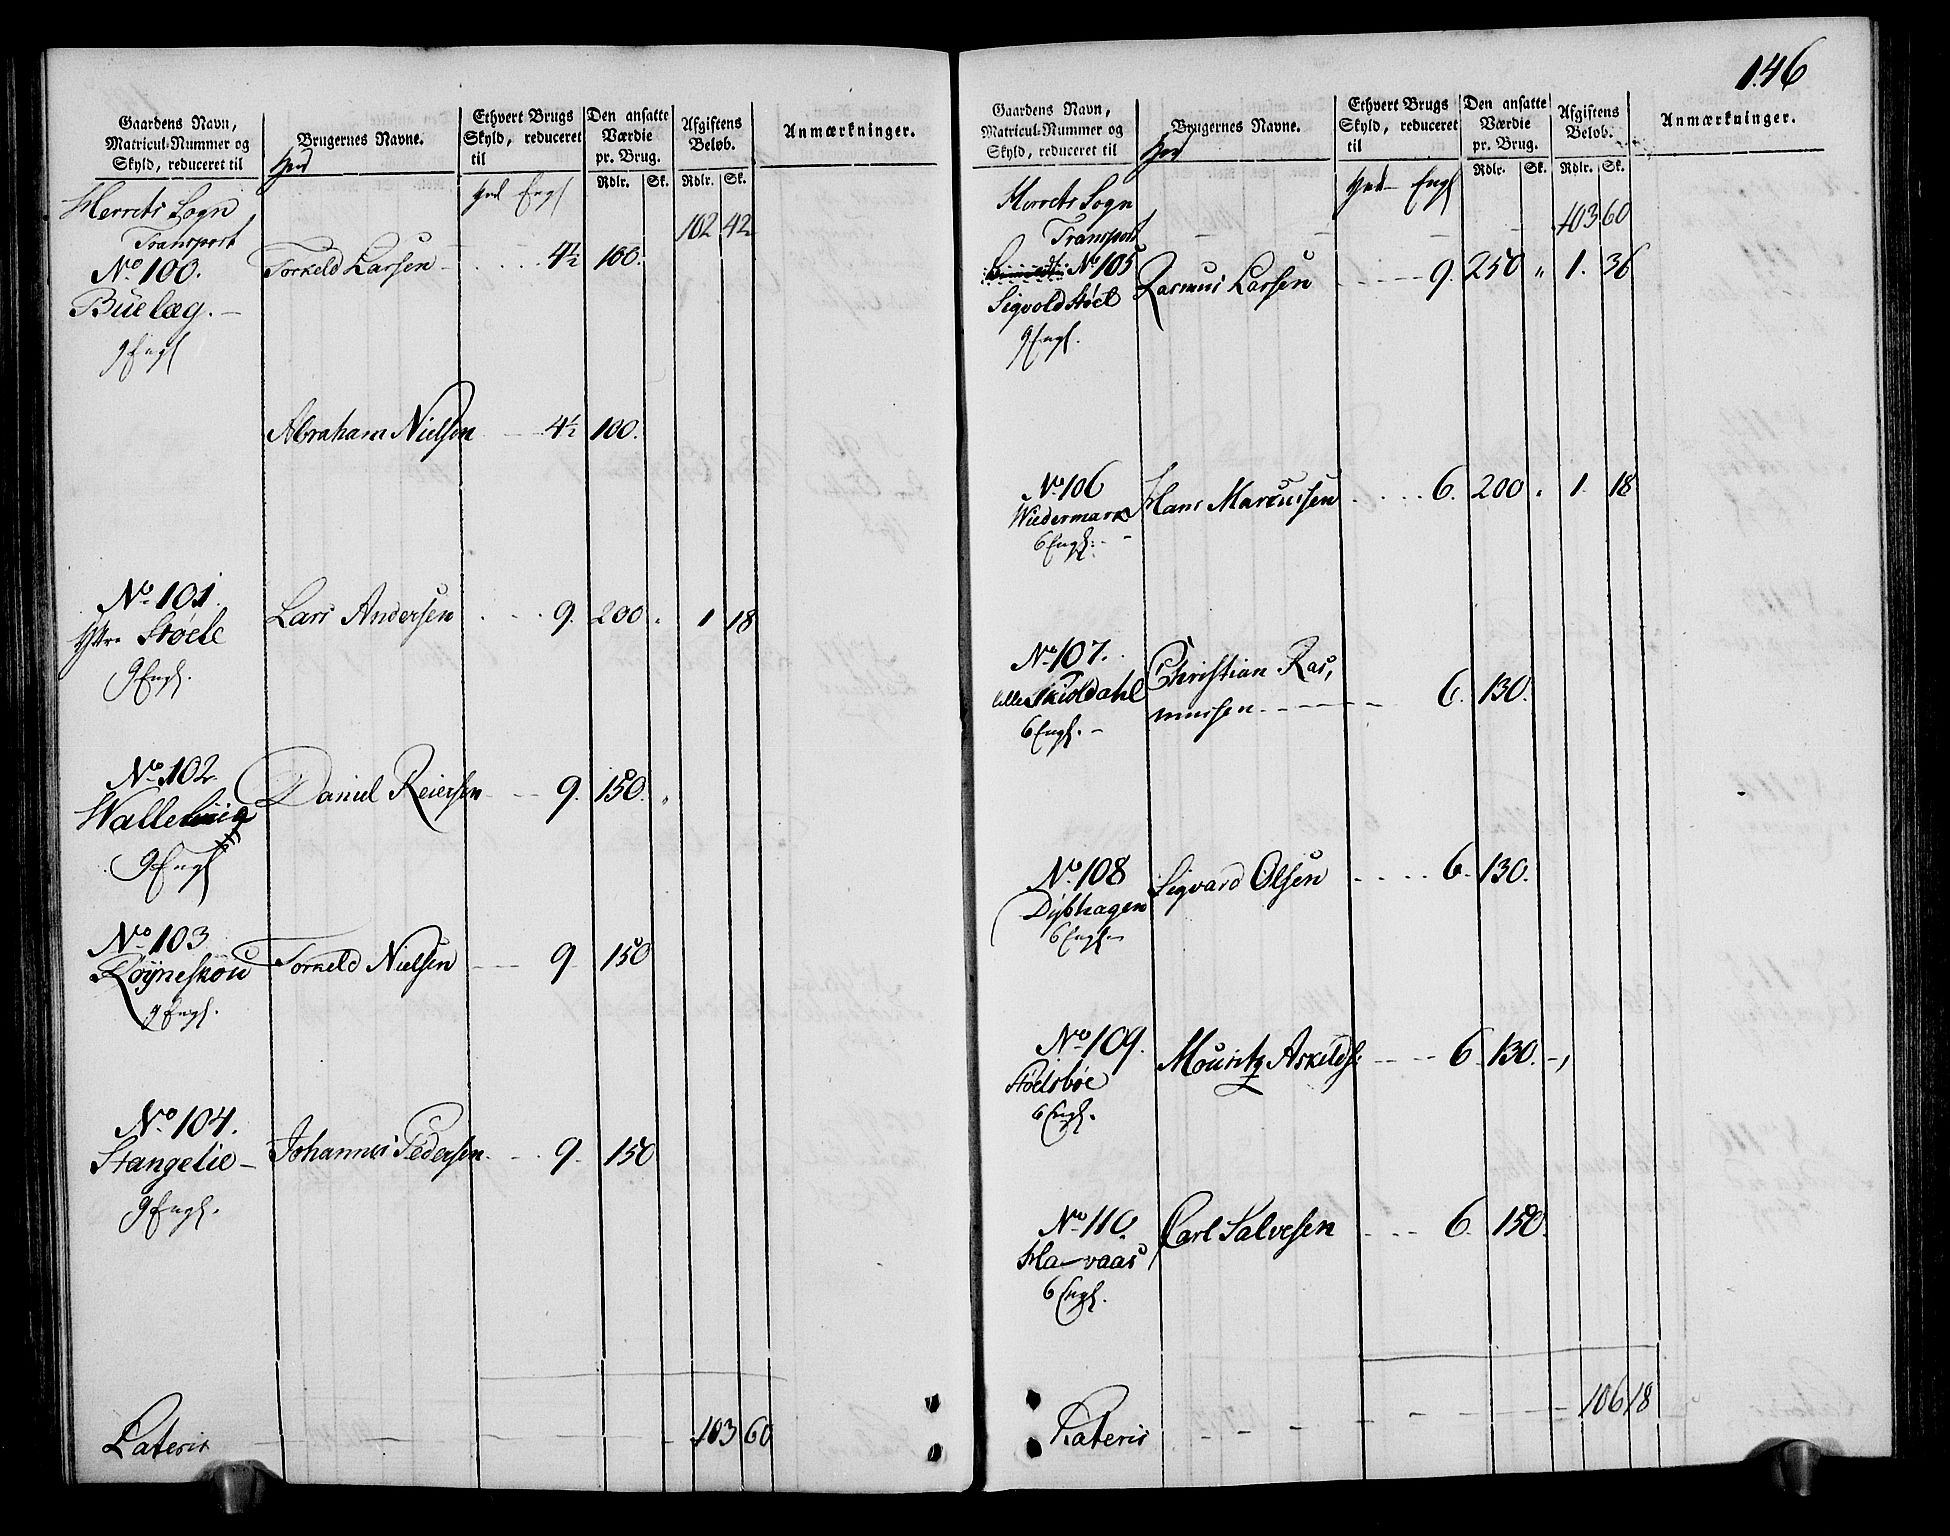 Gaardens Navn,
Matricul-Nummer og
Skyld, reduceret til
Brugernes Navne.
Ethvert Brugs
Skyld, reduceret
til
Den ansatte
Værdie
pr. Brug.
Afgiftens
Beløb.
Anmærkninger.
Hud
Hud Engl
Rdlr. Sk. Rdlr. Sk.
Herrets Sogn
Transport 102 42
No. 100. Torkeld Larsen 4½ 100.
Buelæg.
9 Engl
Abraham Nielsen 4½ 100.
No. 101. Lars Andersen 9. 200 1 18
Yttre Støele
9 Engl.
No. 102. Daniel Reiersen 9. 150.
9 Engl
No. 103 Torkeld Nielsen 9 150
Røyneskou
9 Engl.
No. 104. Johannes Pedersen 9. 150
Stangelie
9 Engl.
Lateris 103 60
146
Gaardens Navn,
Matricul-Nummer og
Skyld, reduceret til
Brugernes Navne.
Ethvert Brugs
Skyld, reduceret
til
Den ansatte
Værdie
pr. Brug.
Afgiftens
Beløb.
Anmærkninger.
Hud
Hud Engl
Rdlr. Sk. Rdlr. Sk.
Herrets Sogn
Transport 103 60
No. 105 Rasmus Larsen 9. 250 " 1. 36
Sigvold Støel
9 Engl.
No. 106 Hans Marcussen 6. 200 1. 18
Wiedermark
6 Engl.
No. 107. Christian Ras,
lille Skioldahl mussen 6. 130.
6 Engl.
No. 108 Sigvard Olsen 6. 130.
Dybhagen
6 Engl.
No. 109. Mouritz Askelds. 6. 130.
Stoelsbøe
6 Engl.
No. 110. Carl Salvesen 6. 150.
Havaas
6 Engl.
Lateris 106 18